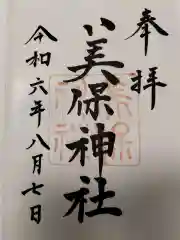 奉拝
八美保神社
令和六年八月七日